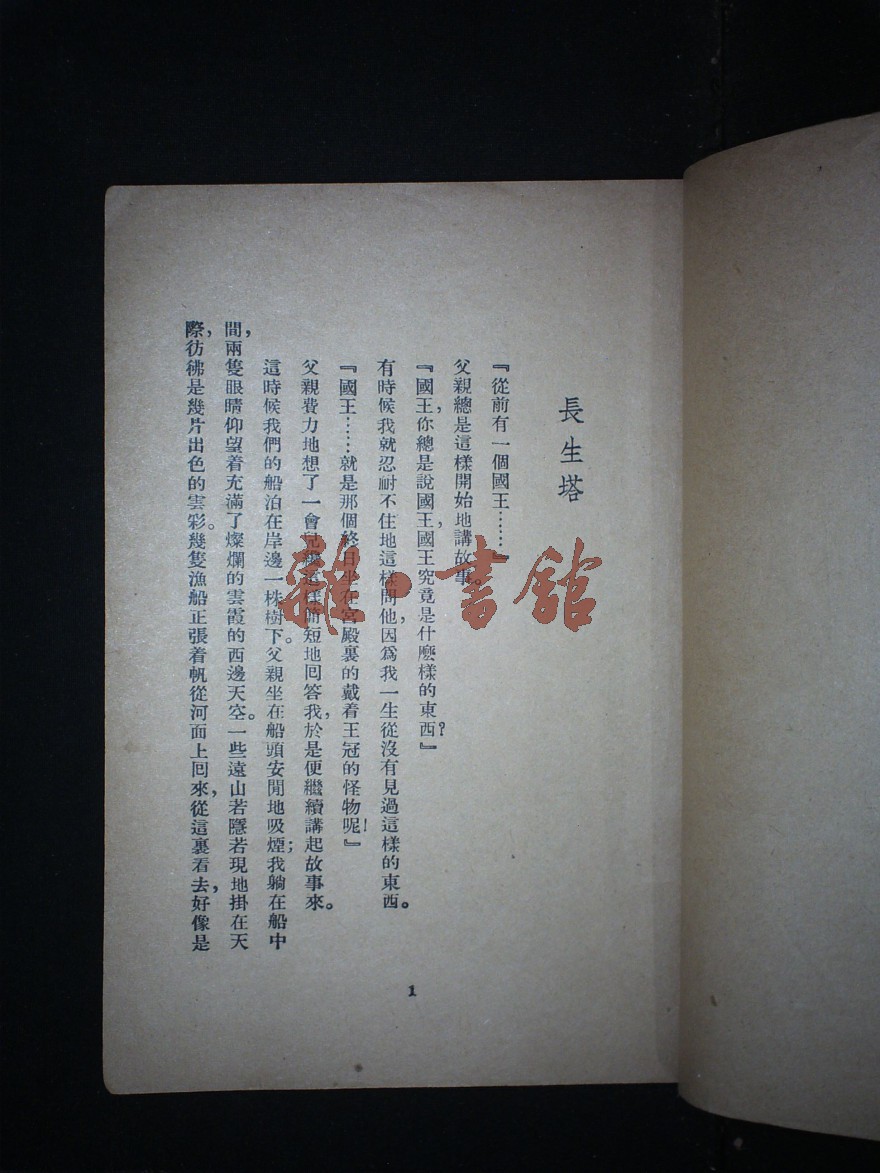 長生塔
『從前有一個國王……』
父親總是這樣開始地講故事。
『國王，你總是說國王，國王究竟是什麼樣的東西？』
有時候我就忍耐不住地這樣問他，因為我一生從沒有見過這樣的東西。
『國王……就是那個終日坐在宮殿裏的戴着王冠的怪物呢！』
父親費力地想了一會兒，纔這樣簡短地回答我，於是便繼續講起故事來。
這時候我們的船泊在岸邊一株樹下。父親坐在船頭安閒地吸煙；我躺在船中
間，兩隻眼睛仰望着充滿了燦爛的雲霞的西邊天空。一些遠山若隱若現地掛在天
際，彷彿是幾片出色的雲彩。幾隻漁船正張着帆從河面上回來，從這裏看去，好像是
1
雜·書館